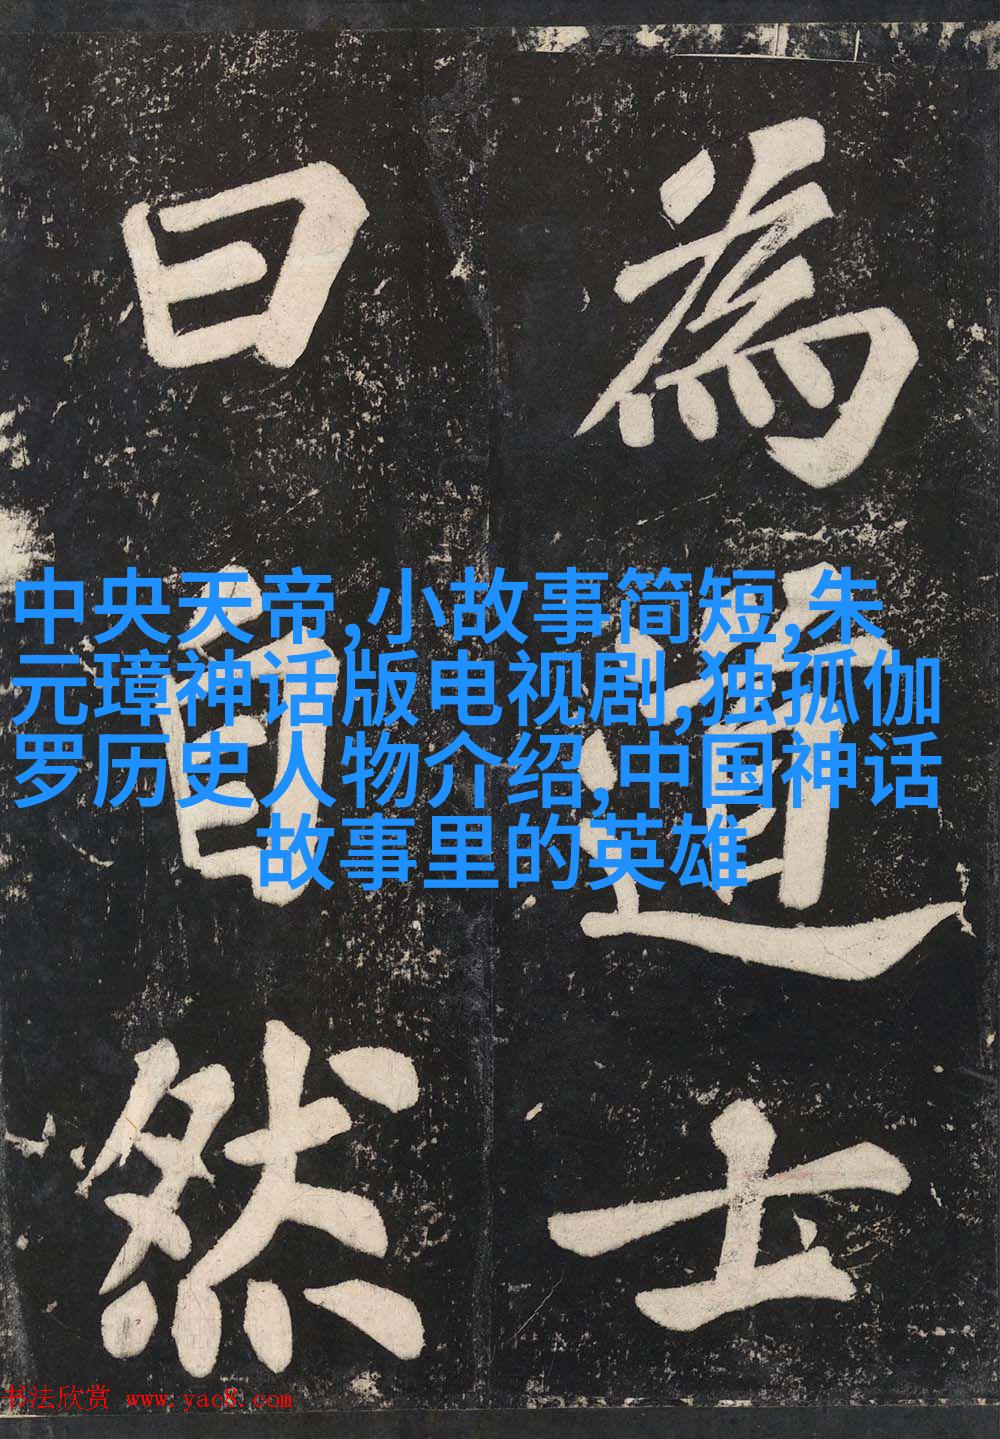 為道士
曰自然
中央天帝,小故事简短,朱
元璋神话版电视剧,独孤伽
罗历史人物介绍,中国神话
故事里的英雄
书法欣赏 www.yac8.com